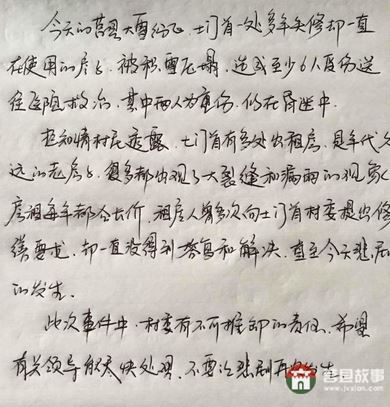 今天的莒县大雪纷飞,土门首一处多年失修却一直
在使用的房子,被积雪压塌,造成至少6人受伤送
往医院救治,其中两人为重伤,仍在昏迷中.
据知情村民透露,土门首有多处出租房,是年代久
远的老房子,复多都出现了大裂缝和漏雨的现象,
房租每年都会长价,租房人曾多次向土门首村委提出修
缮要求,却一直没得到答复和解决,直至今天悲剧
的发生.
此次事件中,村委有不可推卸的责任,希望
有关领导能尽快处理,不要让悲剧再次发生.
莒县故事
www.jvxian.com